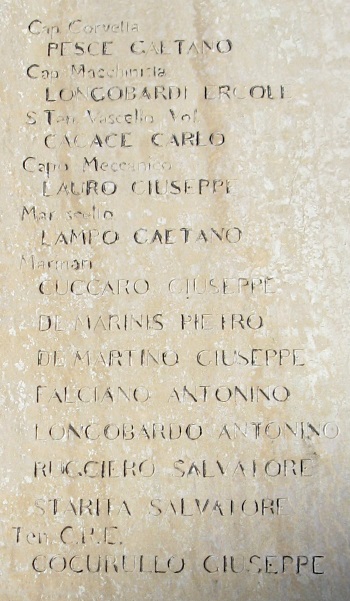 Cap. Corvetta
PESCE GAETANO
Cap. Macchinista
LONGOBARDI ERCOLE
S. Ten. Vascello Vol.
CACACE CARLO
Capo Meccanico
LAURO GIUSEPPE
Maresciallo
LAMPO GAETANO
Marinari
CUCCARO GIUSEPPE
DE MARINIS PIETRO
DE MARTINO GIUSEPPE
FALCIANO ANTONINO
LONGOBARDO ANTONINO
RUGGIERO SALVATORE
STARITA SALVATORE
Ten. C.R.E.
COCURULLO GIUSEPPE